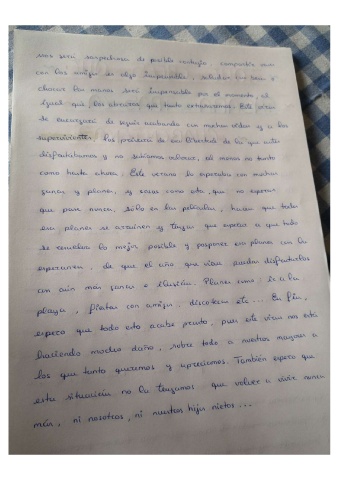 nos será sospechosa de posible contagio, compartir un
con los amigos de algo impensable, saludar con besos o
chocar las manos será impensable por el momento, al
igual que los abrazos que tanto extrañaremos. Este virus
se encargará de seguir acabando con muchas vidas y a los
supervivientes, los privará de esa libertad de la que antes
disfrutábamos y no sabíamos valorar, al menos no tanto
como hasta ahora. Este verano lo esperaba con muchas
ganas y planes, y cosas como esta, que no esperas
que pase nunca, sólo en las películas, hacen que todos
esos planes se arruinen y tengas que esperar a que todo
se resuelva lo mejor posible y posponer esos planes con la
esperanza, de que el año que viene puedas disfrutarlos
con aún más ganas e ilusión. Planes como: ir a la
playa, fiestas con amigos, discotecas etc... En fin,
espero que todo esto acabe pronto, pues este virus nos está
haciendo mucho daño, sobre todo a nuestros mayores a
los que tanto queremos y apreciamos. También espero que
esta situación no la tengamos que volver a vivir nunca
más, ni nosotros, ni nuestros hijos, nietos...